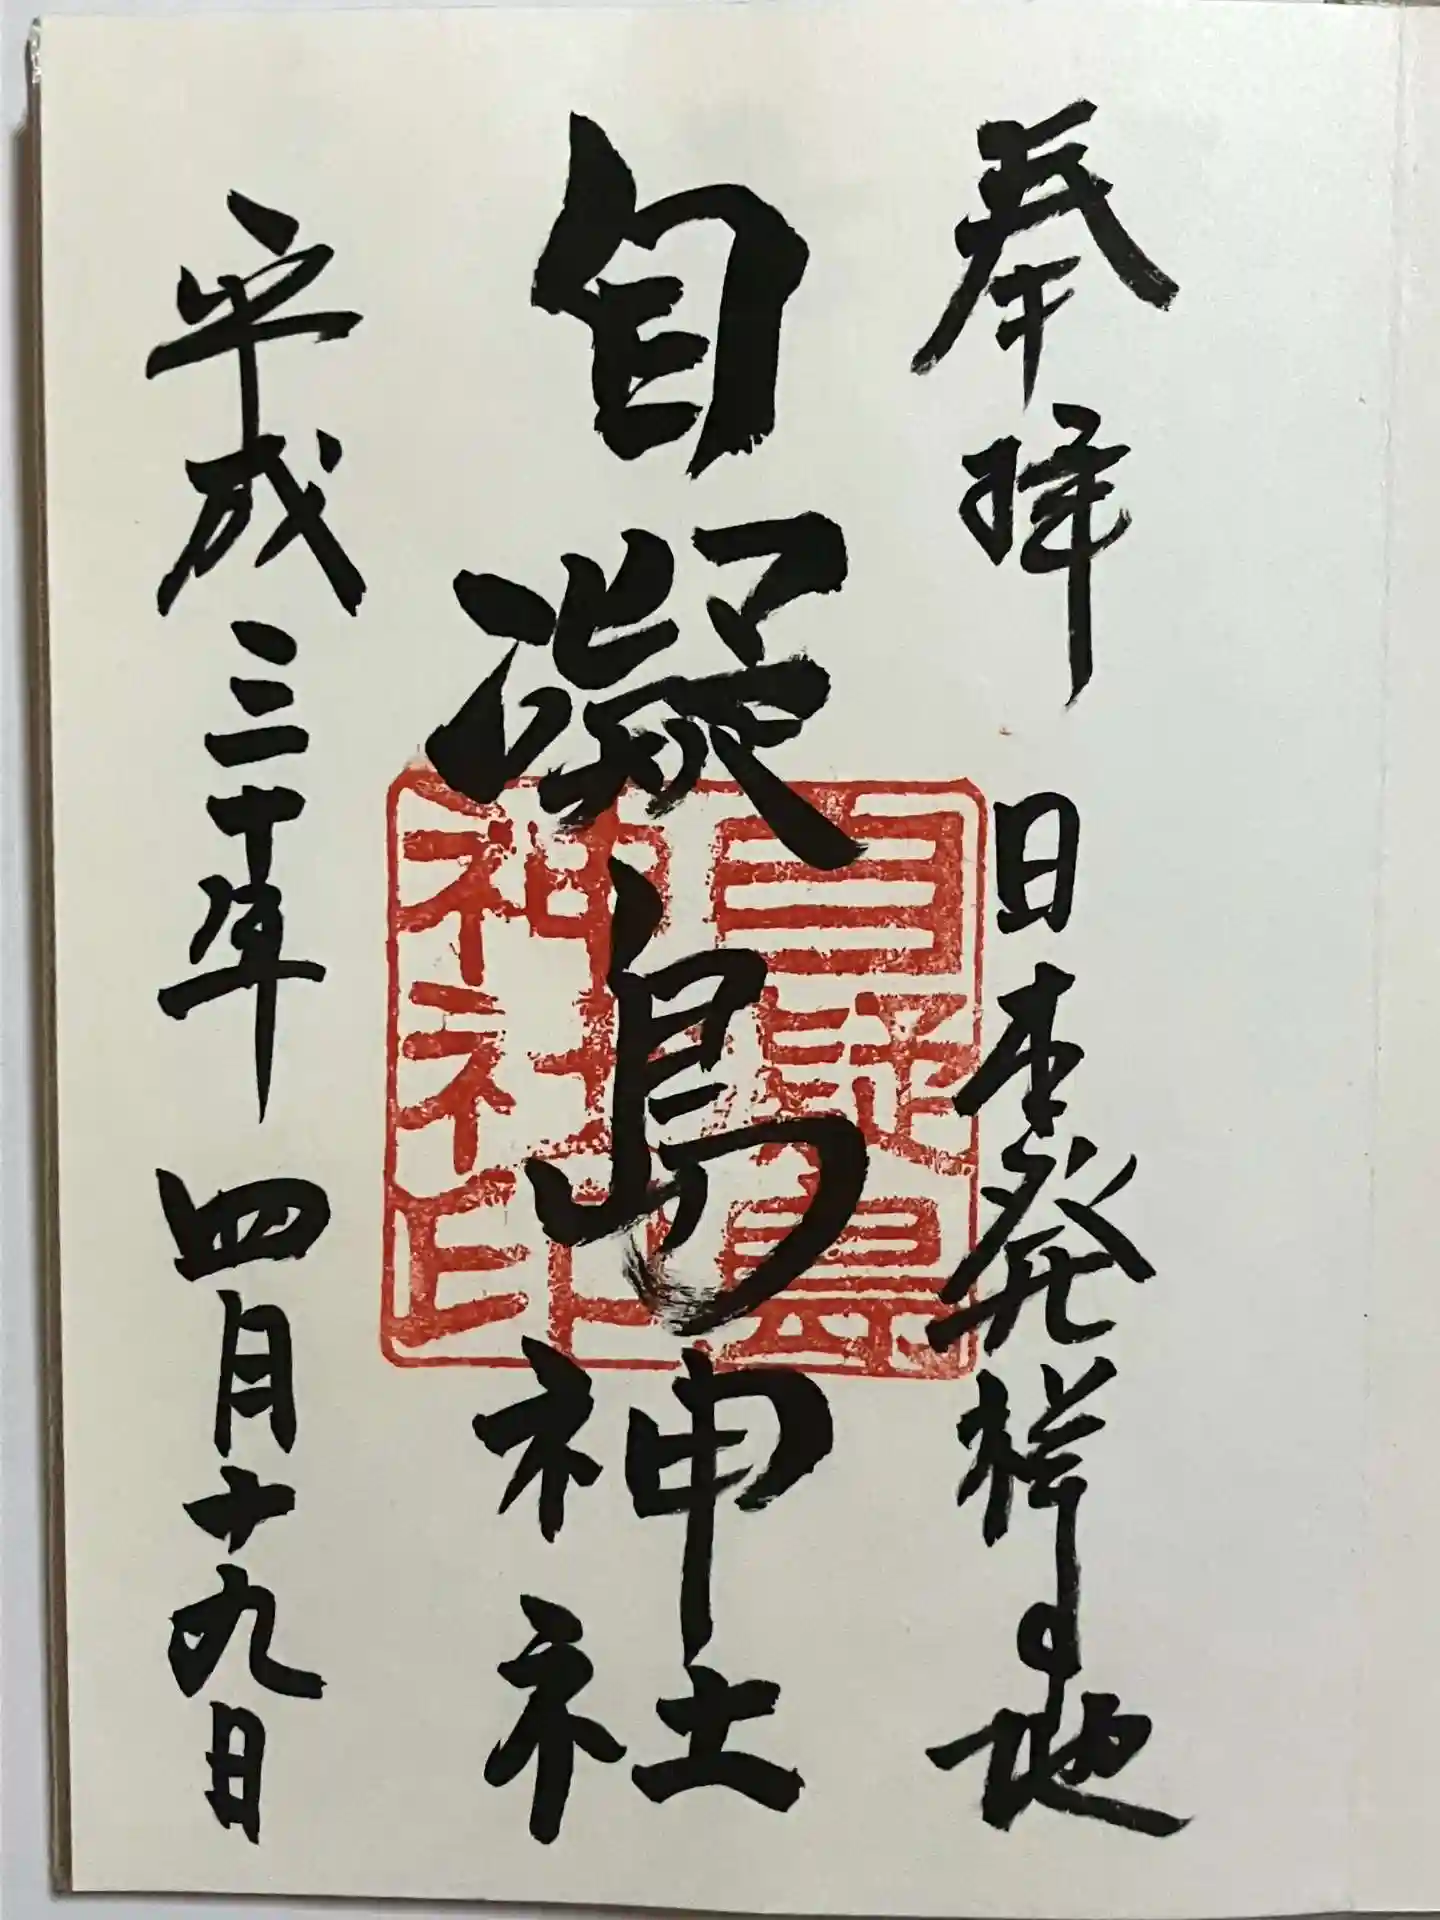 奉拝　日本発祥の地
自凝島神社
平成三十年　四月十九日
自凝島
神社印